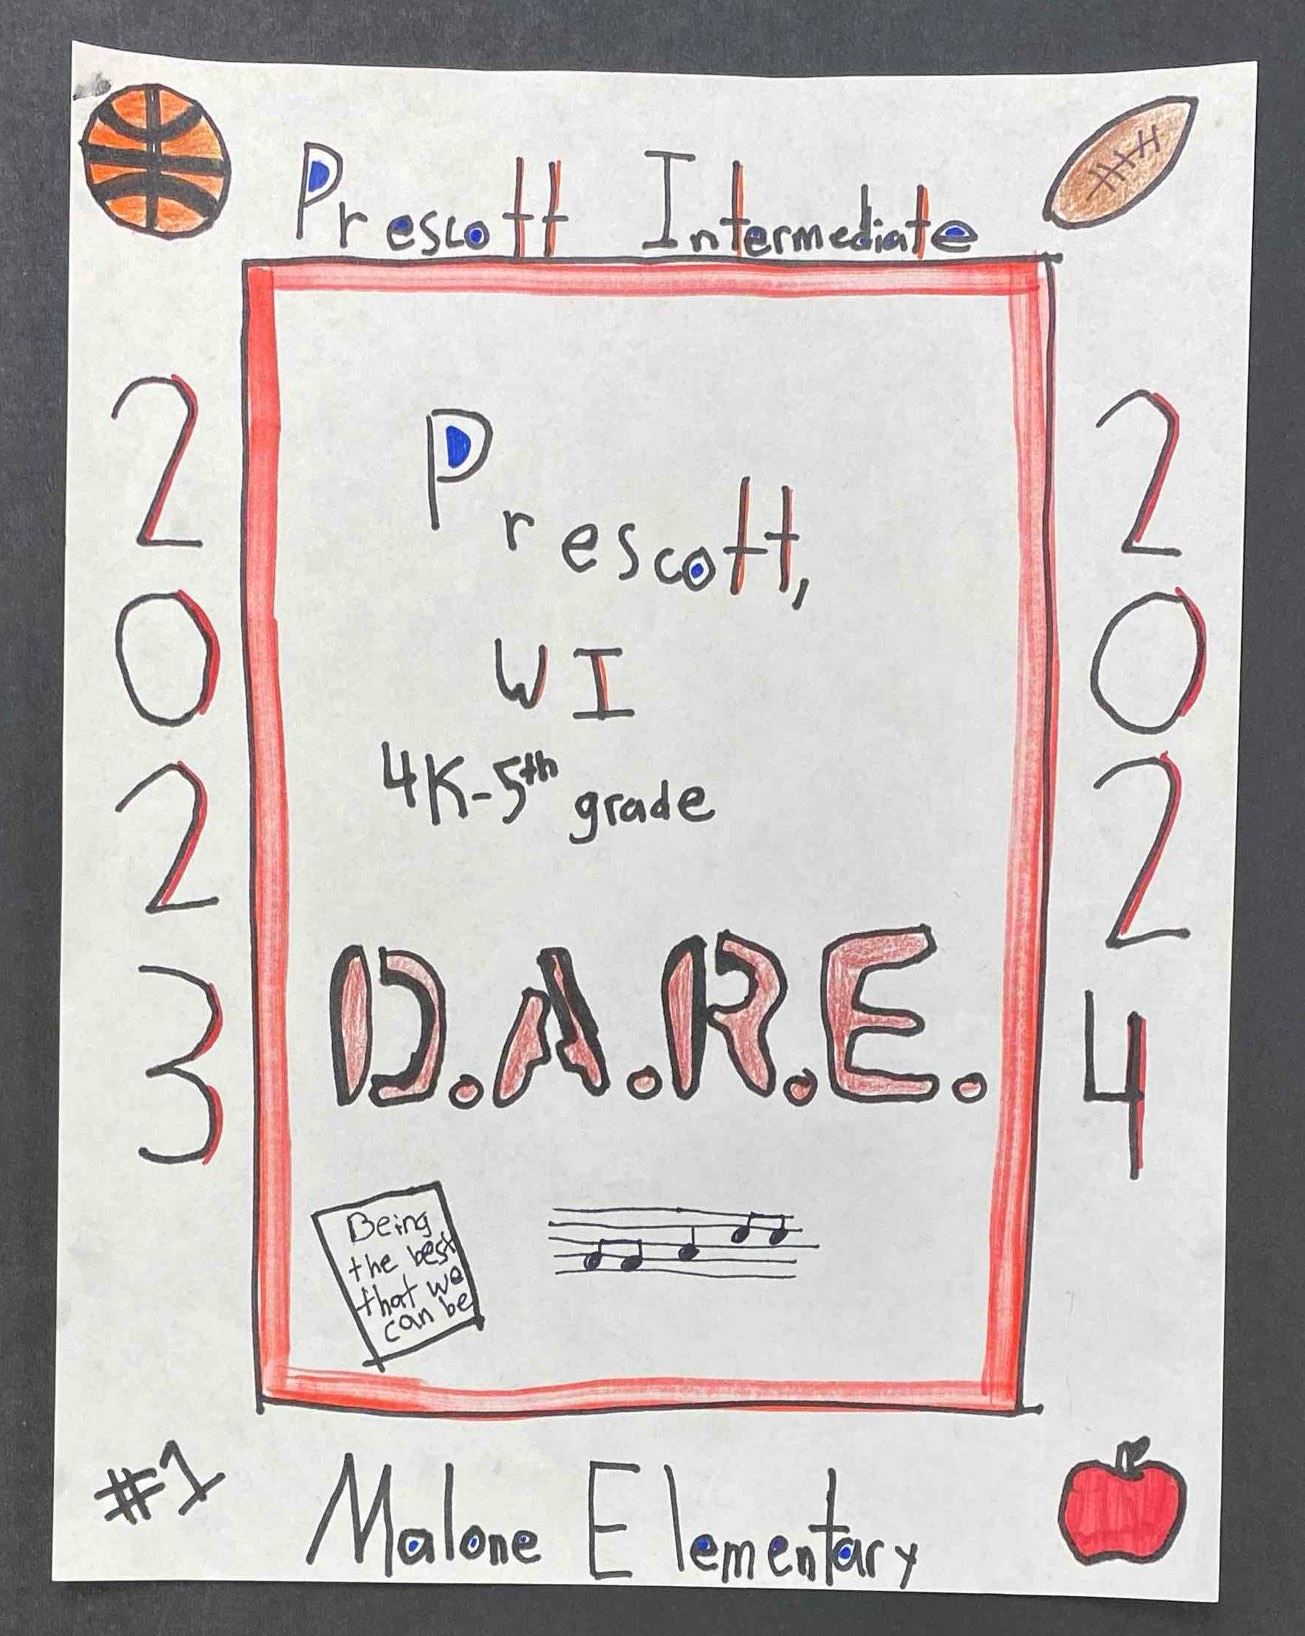 Prescott Intermediate
2023
2024
Prescott,
WI
4K-5th grade
D.A.R.E.
Being
the best
that we
can be
#1
Malone Elementary